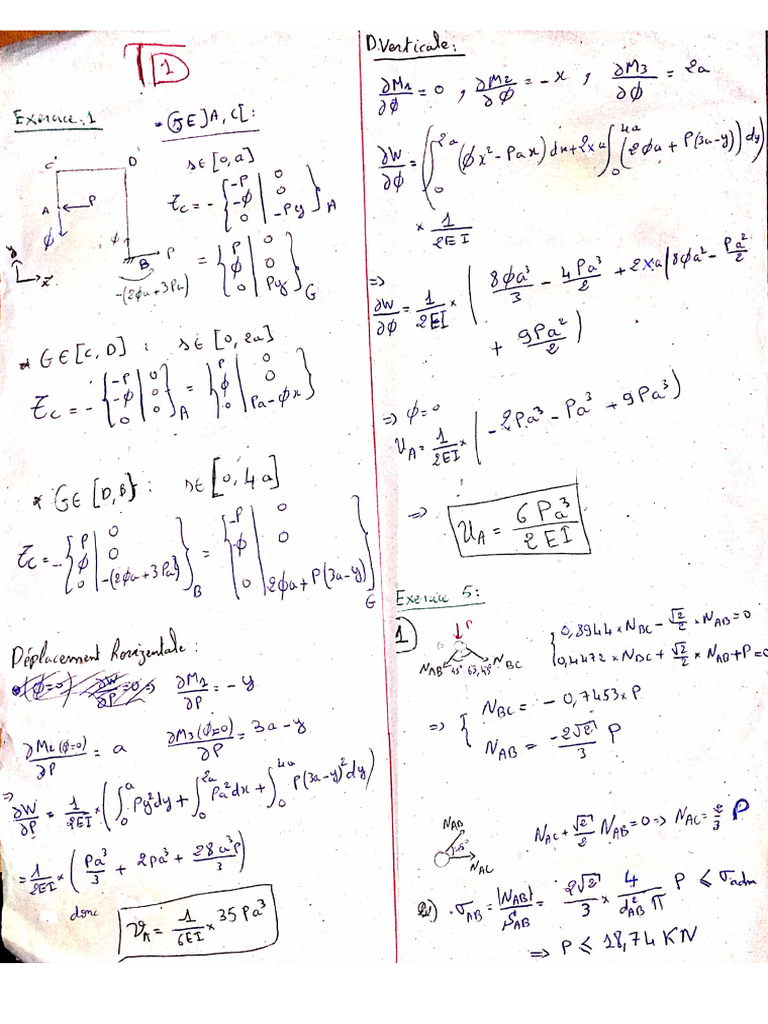 TD 1
Exercice: 1
* G ∈ ]A, C[ :
s ∈ [0, a]
C D
A P
φ φ
B P
y x
-(2φa + 3Pa)
τc = - { -P | 0 ; -φ | 0 ; 0 | -Py }A
= { P | 0 ; φ | 0 ; 0 | Py }G
* G ∈ [C, D] : s ∈ [0, 2a]
τc = - { -P | 0 ; -φ | 0 ; 0 | 0 }A = { P | 0 ; φ | 0 ; 0 | Pa - φx }
* G ∈ [D, B] : s ∈ [0, 4a]
τc = - { P | 0 ; φ | 0 ; 0 | -(2φa + 3Pa) }B = { -P | 0 ; -φ | 0 ; 0 | 2φa + P(3a-y) }G
Déplacement horizentale :
(φ=0) ∂W/∂P = 0 => ∂M1/∂P = -y
∂M2(φ=0)/∂P = a ∂M3(φ=0)/∂P = 3a - y
=> ∂W/∂P = 1/2EI × ( ∫₀^a Py² dy + ∫₀^2a Pa² dx + ∫₀^4a P(3a-y)² dy )
= 1/2EI × ( Pa³/3 + 2Pa³ + 28a³P/3 )
donc
v_A = 1/6EI × 35 Pa³
D. Verticale :
∂M1/∂φ = 0 , ∂M2/∂φ = -x , ∂M3/∂φ = 2a
∂W/∂φ = ( ∫₀^2a (φx² - Pax) dx + 2×a ∫₀^4a (2φa + P(3a-y)) dy )
× 1/2EI
=> ∂W/∂φ = 1/2EI × ( 8φa³/3 - 4Pa³/2 + 2×a ( 8φa² - Pa²/2
+ 9Pa²/2 )
=> φ=0
u_A = 1/2EI × ( -2Pa³ - Pa³ + 9Pa³ )
=> u_A = 6Pa³/2EI
Exercice 5 :
1
P
B
N_AB 45° 63,43° N_BC
{ 0,8944 × N_BC - √2/2 × N_AB = 0
0,4472 × N_BC + √2/2 × N_AB + P = 0
=> { N_BC = - 0,7453 × P
N_AB = -2√2/3 P
N_AB
45°
N_AC
N_AC + √2/2 N_AB = 0 => N_AC = 2/3 P
2) . σ_AB = |N_AB|/S_AB = 2√2/3 × 4/d²_AB π P ≤ σ_adm
=> P ≤ 18,74 KN